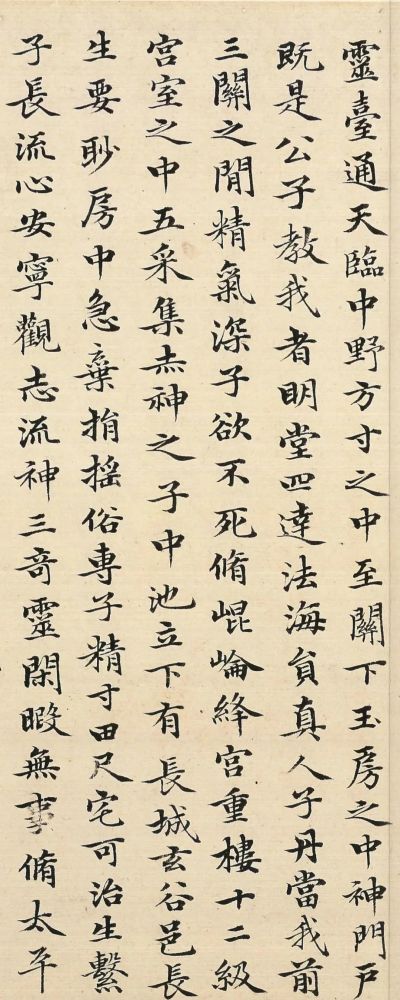 靈臺通天臨中野方寸之中至關下玉房之中神門戶
既是公子教我者明堂四達法海負真人子丹當我前
三關之間精氣深子欲不死脩崐崘絳宮重樓十二級
宮室之中五采集赤神之子中池立下有長城玄谷邑長
生要眇房中急棄捐搖俗專子精寸田尺宅可治生繫
子長流心安寧觀志流神三奇靈閑暇無事脩太平